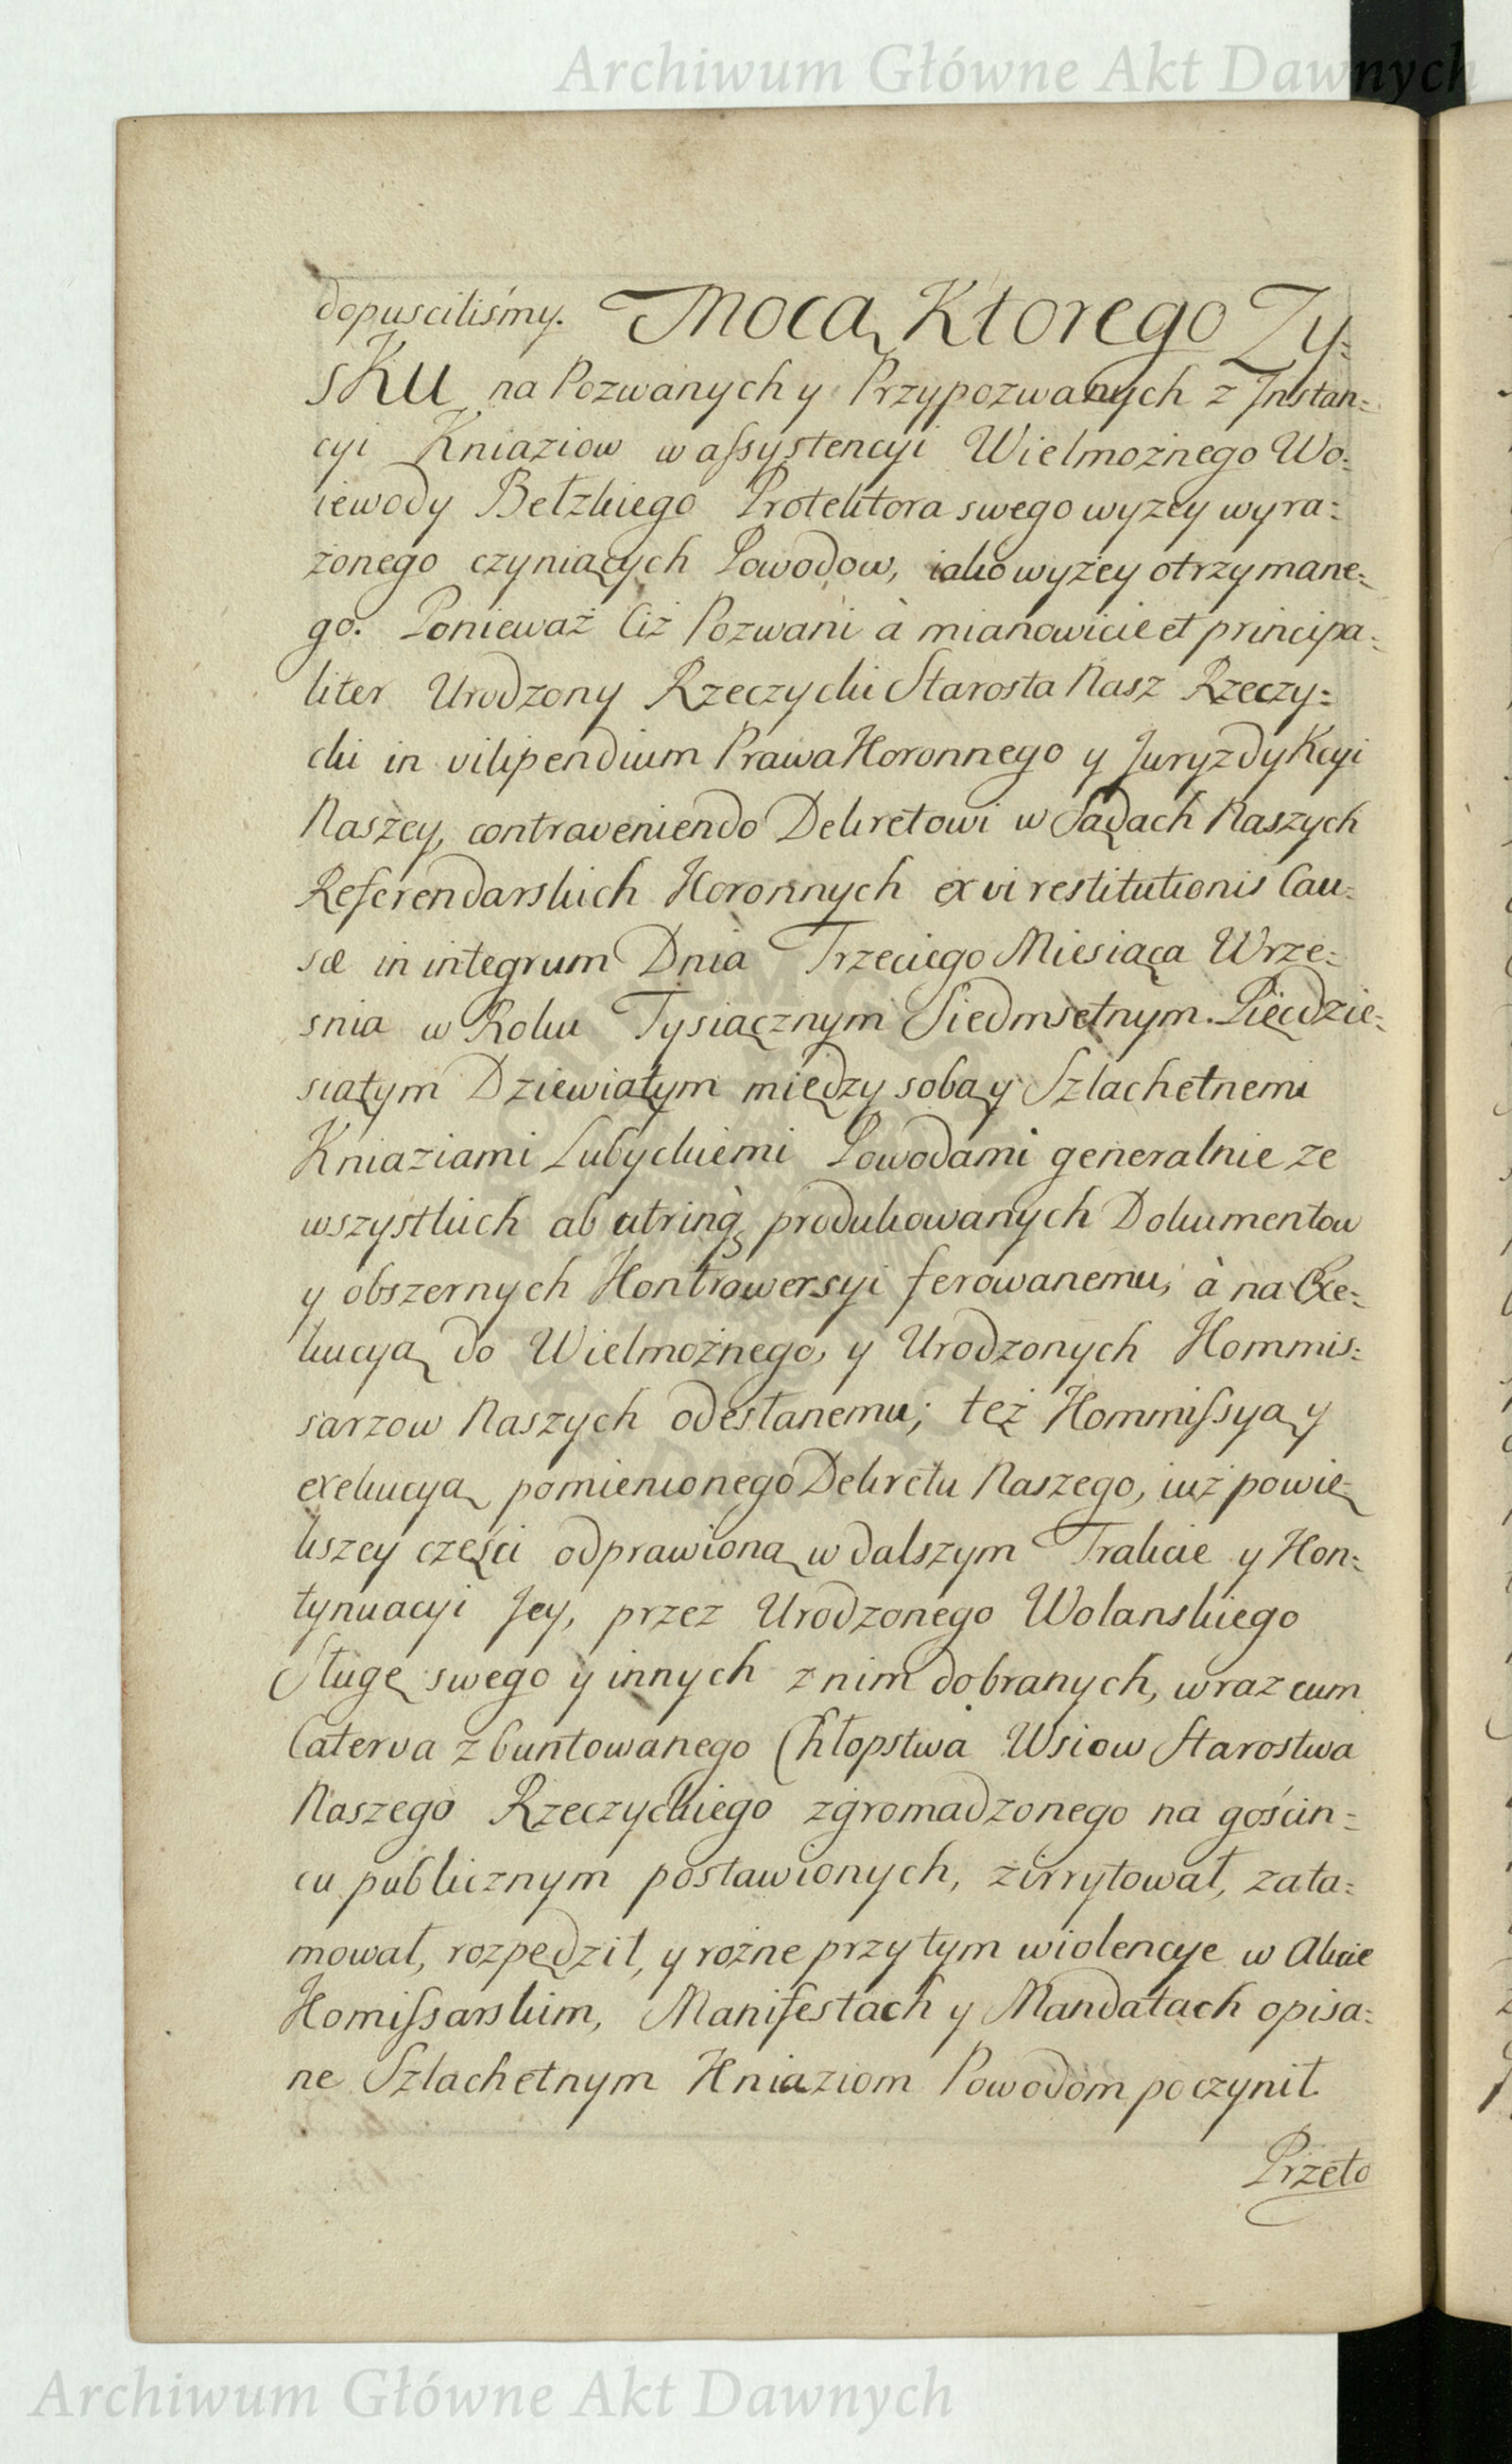 Archiwum Główne Akt Dawnych
dopusciliśmy. Mocą Ktorego Zy=
sKu na Pozwanych y Przypozwanych z Jnstan=
cyi Kniaziow w aſsystencyi Wielmożnego Wo=
iewody Bełzkiego Protektora swego wyżey wyra=
żonego czyniących Powodow, iako wyżey otrzymane=
go. Ponieważ Ciż Pozwani à mianowicie et principa=
liter Urodzony Rzeczycki Starosta Nasz Rzeczy=
cki in vilipendium Prawa Koronnego y Juryzdykcyi
Naszey, contraveniendo Dekretowi w Sądach Naszych
Referendarskich Koronnych ex vi restitutionis Cau=
sæ in integrum Dnia Trzeciego Miesiąca Wrze=
snia w Roku Tysiącznym Siedmsetnym Pięcdzie=
siątym Dziewiątym między sobą y Szlachetnemi
Kniaziami Lubyckiemi Powodami generalnie ze
wszystkich ab utrinq; produkowanych Dokumentow
y obszernych Kontrowersyi ferowanemu, à na Exe=
kucyą do Wielmożnego, y Urodzonych Kommis=
sarzow Naszych odesłanemu; też Kommiſsyą y
exekucyą pomienionego Dekretu Naszego, iuż powię=
kszey części odprawioną w dalszym Trakcie y Kon=
tynuacyi Jey, przez Urodzonego Wolanskiego
Sługę swego y innych z nim dobranych, wraz cum
Caterva zbuntowanego Chłopstwa Wsiow Starostwa
Naszego Rzeczyckiego zgromadzonego na gościn=
cu publicznym postawionych, zirrytował, zata=
mował, rozpędził, y rożne przytym wiolencye w Akcie
Komiſsarskim, Manifestach y Mandatach opisa=
ne Szlachetnym Kniaziom Powodom poczynił.
Przeto
Archiwum Główne Akt Dawnych